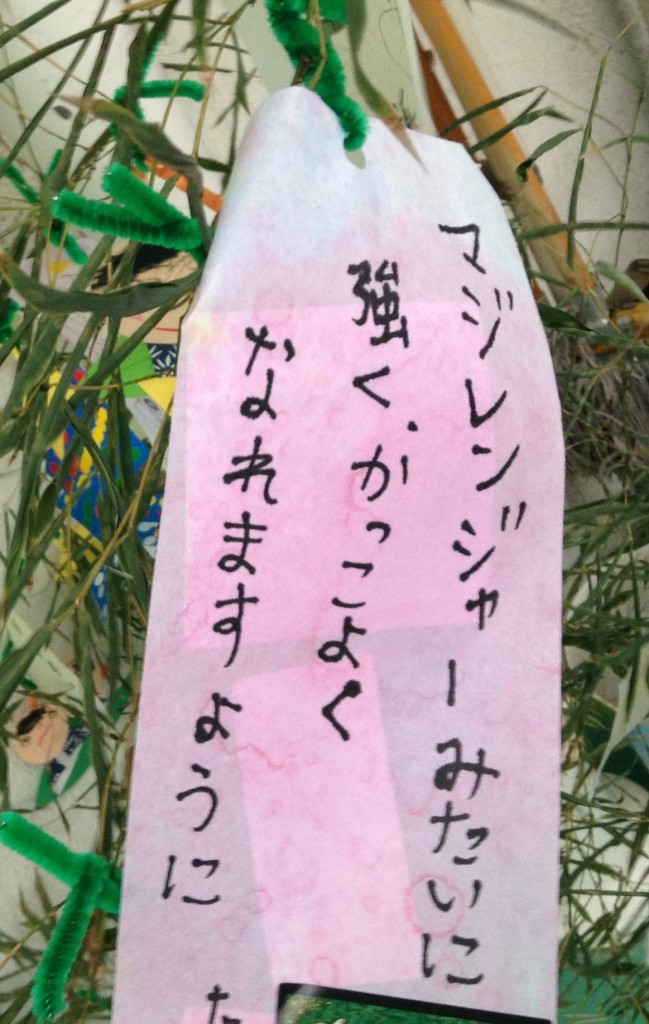 マジレンジャーみたいに
強く、かっこよく
なれますように
た